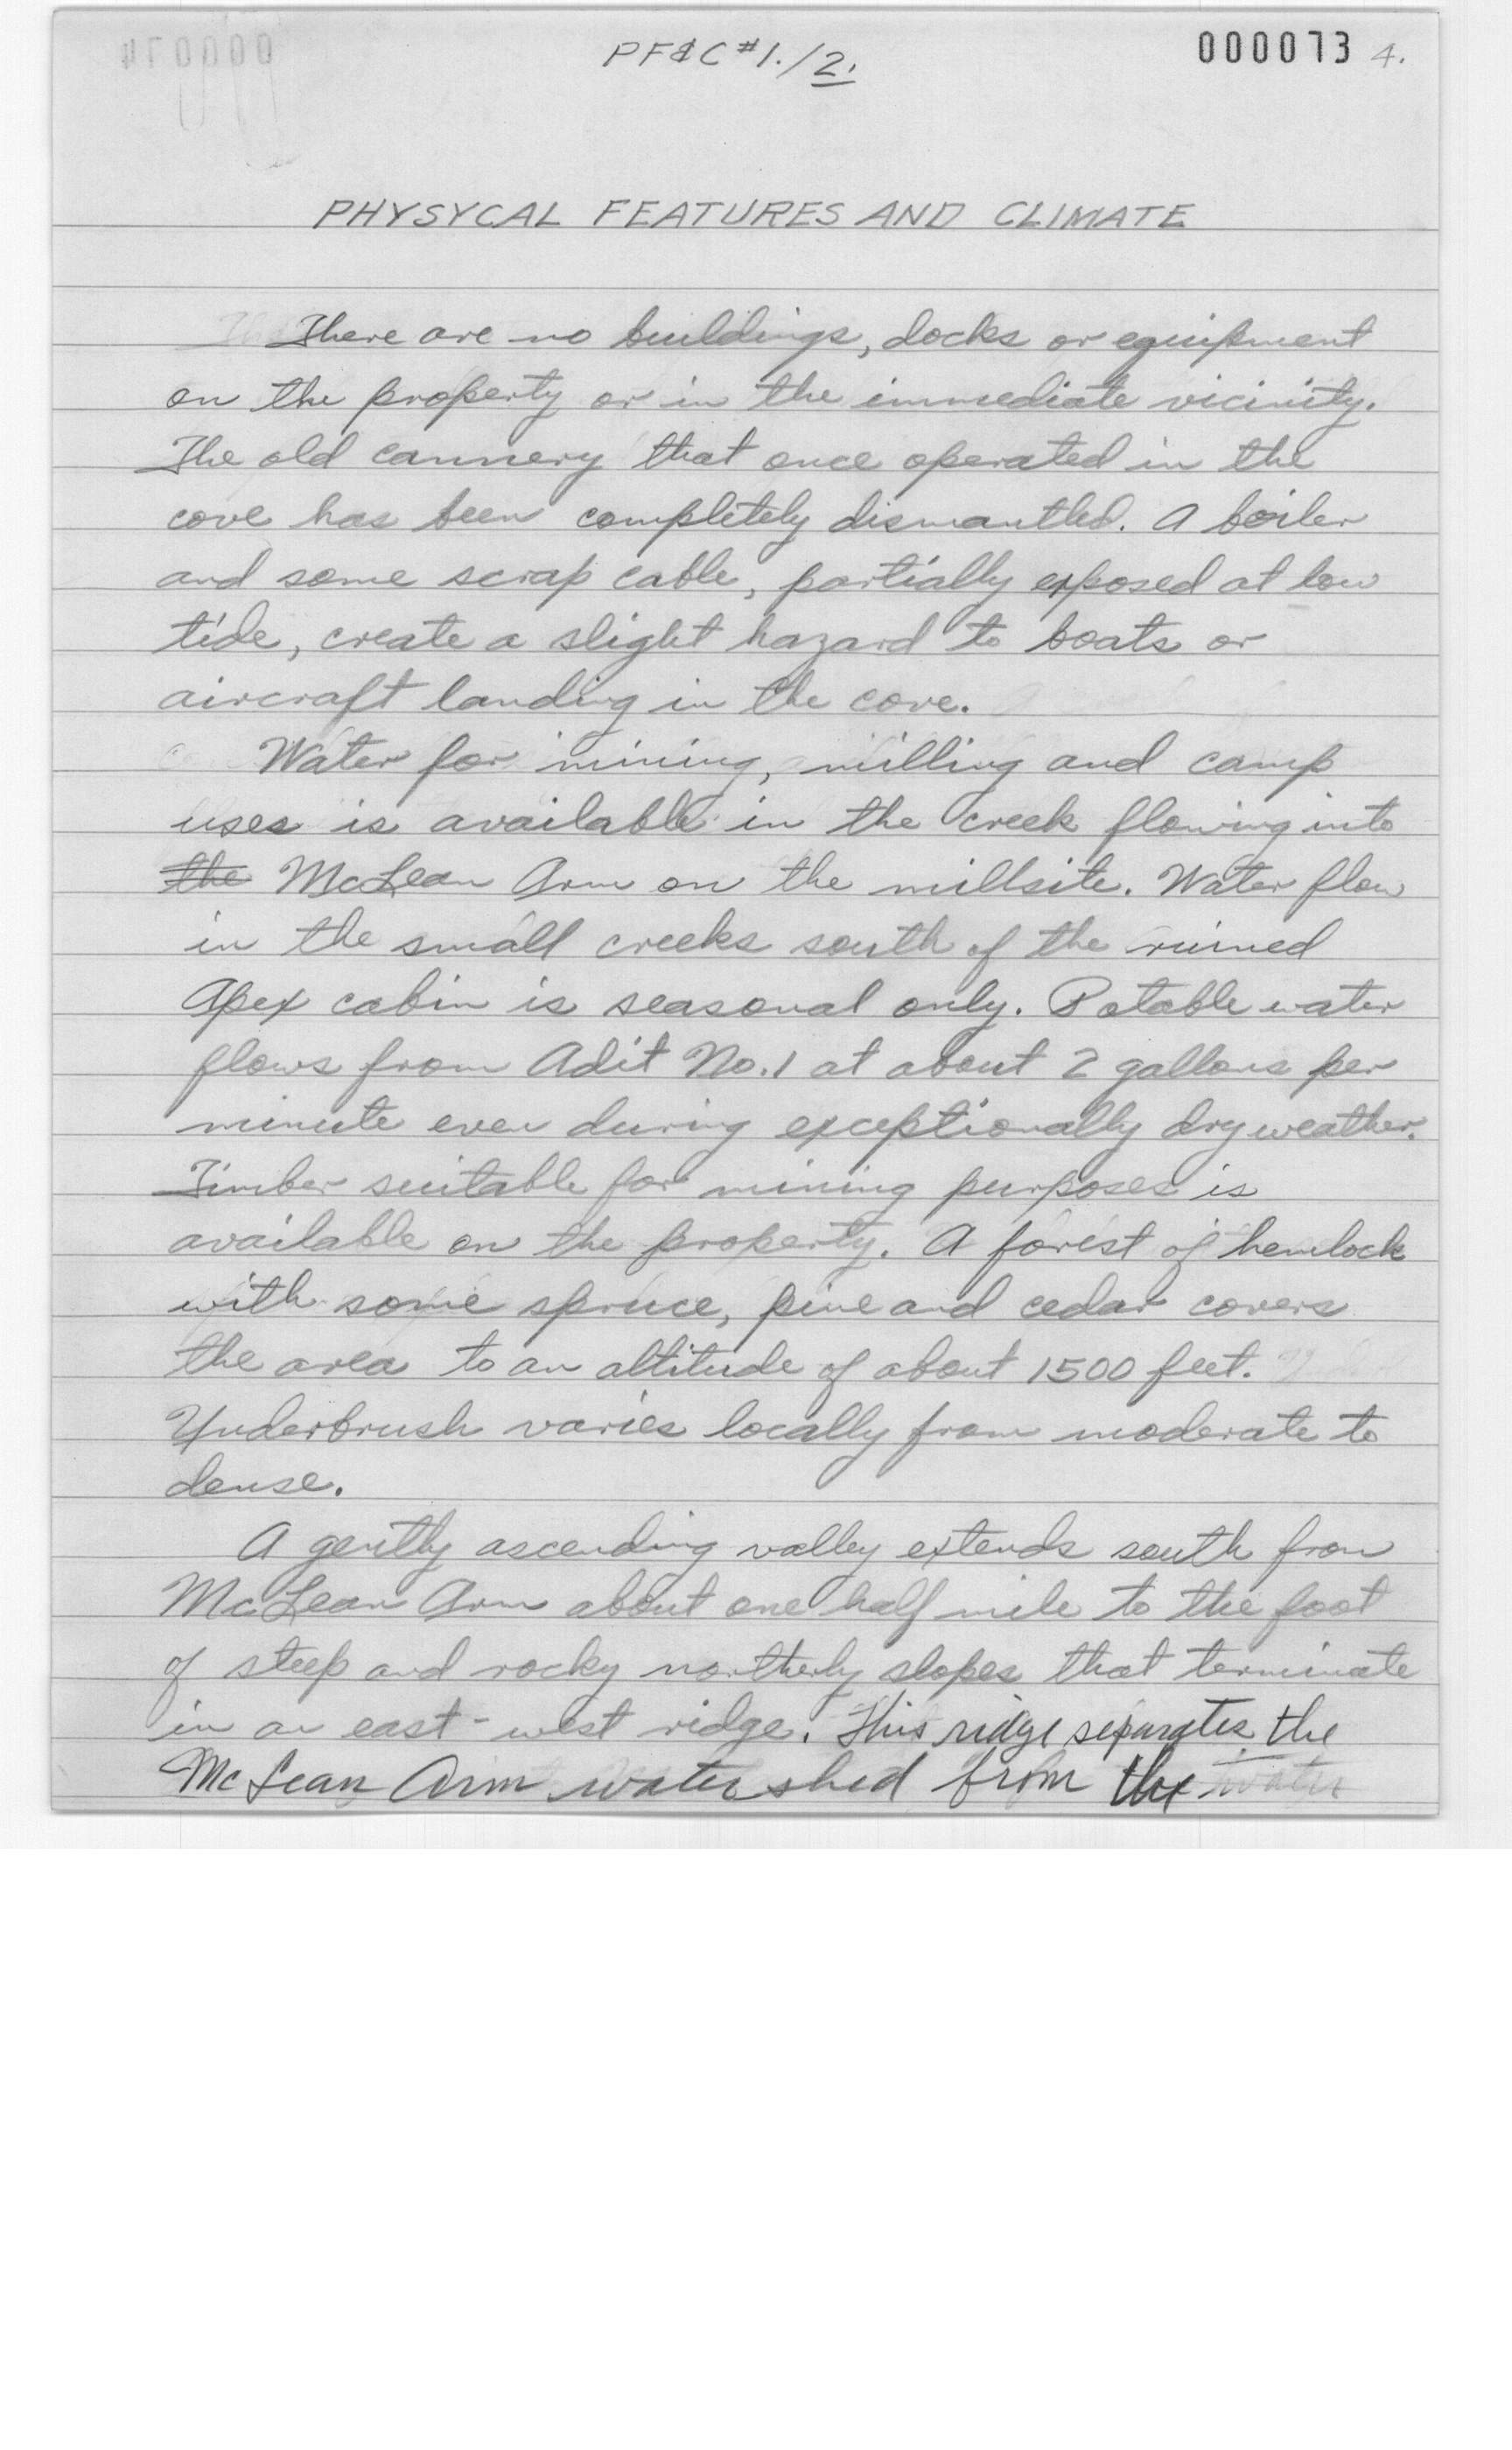 PF&C #1./2.
000073 4.
PHYSYCAL FEATURES AND CLIMATE
There are no buildings, docks or equipment
on the property or in the immediate vicinity.
The old cannery that once operated in the
cove has been completely dismantled. A boiler
and some scrap cable, partially exposed at low
tide, create a slight hazard to boats or
aircraft landing in the cove.
Water for mining, milling and camp
uses is available in the creek flowing into
the McLean Arm on the millsite. Water flow
in the small creeks south of the ruined
Apex cabin is seasonal only. Potable water
flows from Adit No. 1 at about 2 gallons per
minute even during exceptionally dry weather.
Timber suitable for mining purposes is
available on the property. A forest of hemlock
with some spruce, pine and cedar covers
the area to an altitude of about 1500 feet.
Underbrush varies locally from moderate to
dense.
A gently ascending valley extends south from
McLean Arm about one half mile to the foot
of steep and rocky northerly slopes that terminate
in an east-west ridge. This ridge separates the
McLean Arm water shed from the water